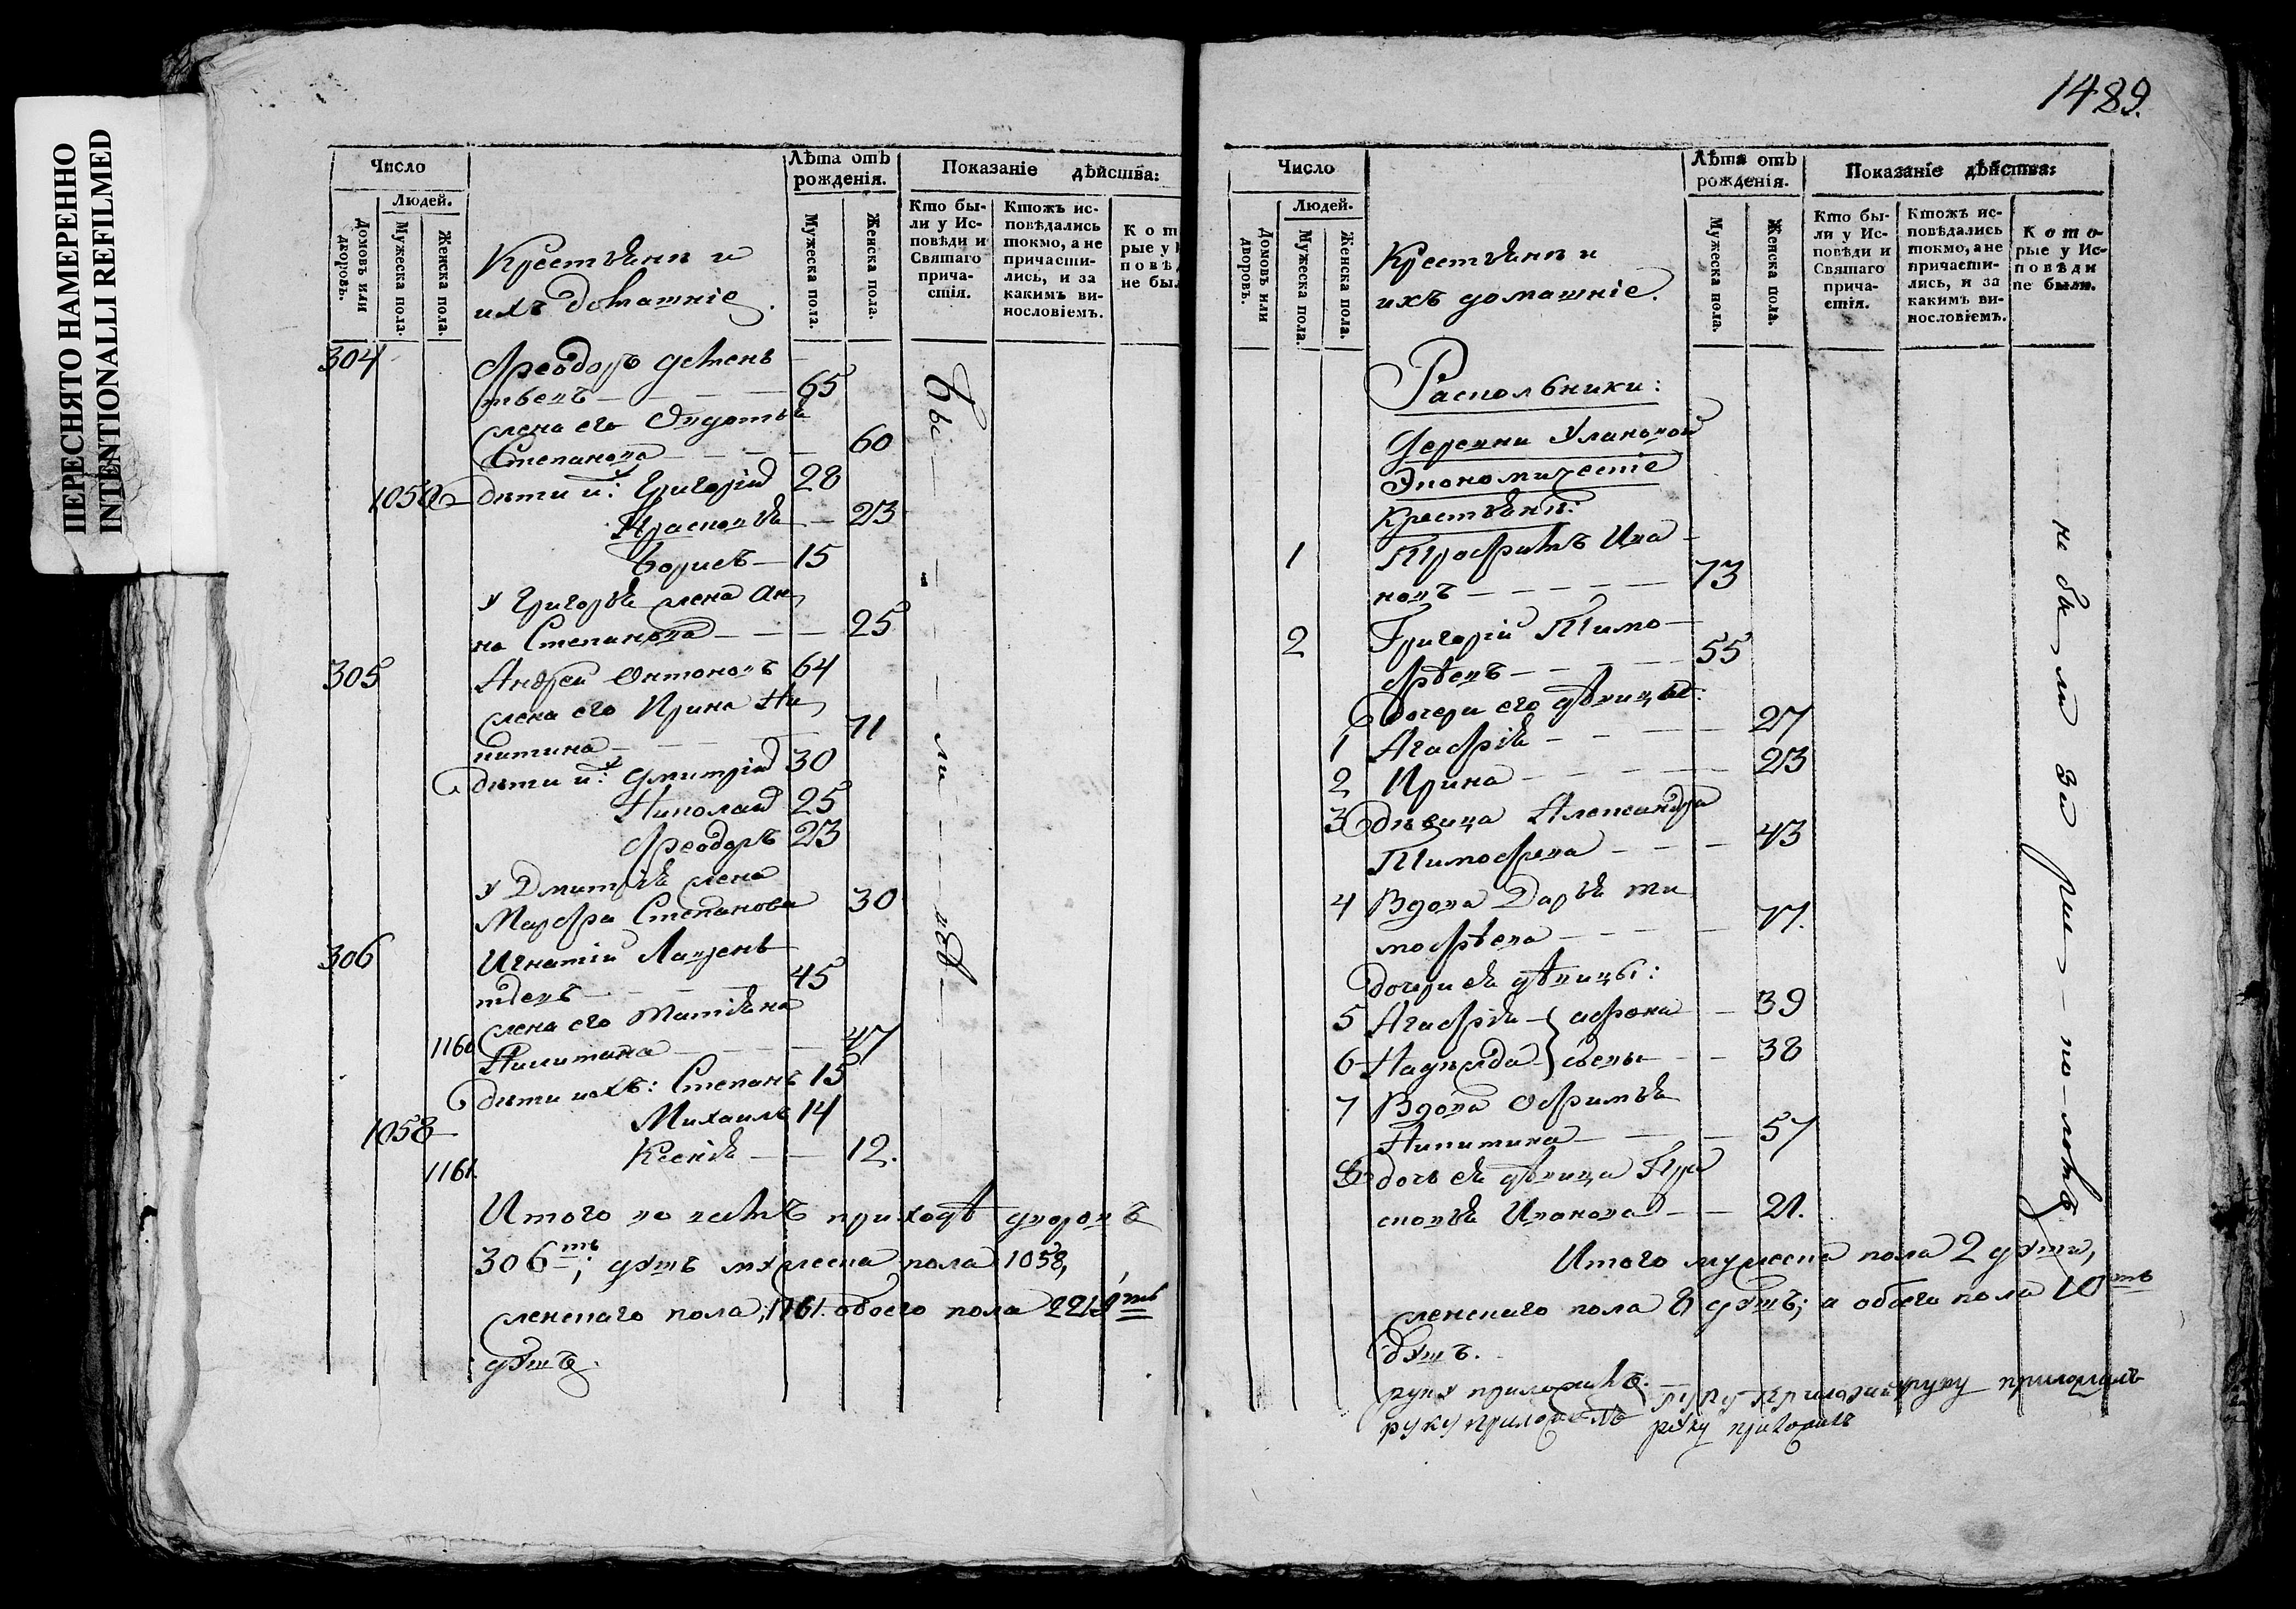 ПЕРЕСНЯТО НАМЕРЕННО
INTENTIONALLI REFILMED
Число
Людей.
Домовъ или дворовъ.
Мужеска пола.
Женска пола.
Крестьяне и
ихъ домашніе.
Лѣта отъ
рожденія.
Мужеска пола.
Женска пола.
Показаніе дѣйства:
Кто бы-
ли у Ис-
повѣди и
Святаго
прича-
стія.
Ктожъ ис-
повѣдались
токмо, а не
причасти-
лись, и за
какимъ ви-
нословіемъ.
Кот
рые у
повѣд
не был
304 Ѳеодоръ Демень
тьевъ 65
жена его Евдотья
Степанова 60
1050 дѣти и: Григорій 28
Прасковья 23
Борисъ 15
У Григорья жена Ан
на Степанова 25
305 Андрей Антоновъ 64
жена его Ирина Ни
китина 71
дѣти и: Дмитрій 30
Николай 25
Ѳеодоръ 23
У Дмитрія жена
Марѳа Степанова 30
306 Игнатій Лаврень
тьевъ 45
жена его Татіяна
1160 Никитина 47
дѣти ихъ: Степанъ 15
Михаилъ 14
1058
Ксенія 12.
1161.
бы ли всѣ
Итого во всѣмъ приходѣ дворовъ
306ть; душъ мужеска пола 1058,
женскаго пола, 1161. обоего пола 2219ть
душъ.
1489.
Число
Людей.
Домовъ или дворовъ.
Мужеска пола.
Женска пола.
Крестьяне и
ихъ домашніе.
Лѣта отъ
рожденія.
Мужеска пола.
Женска пола.
Показаніе дѣйства:
Кто бы-
ли у Ис-
повѣди и
Святаго
прича-
стія.
Ктожъ ис-
повѣдались
токмо, а не
причасти-
лись, и за
какимъ ви-
нословіемъ.
Кото-
рые у Ис-
повѣди
не были.
Раскольники:
Деревни Улановой
Экономическіе
Крестьяне:
1 Трофимъ Ива
новъ 73
2 Григорій Тимо
ѳѣевъ 55
дочери его дѣвицы:
1 Агафія 27
2 Ирина 23
3 дѣвица Александра
Тимофеева 43
4 Вдова Дарья Ти
мофѣева 77.
дочери ея дѣвицы:
5 Агафія 39
6 Надежда 38
7 Вдова Офимья
Никитина 57
8 дочь ея дѣвица Пра
сковья Иванова 21.
не бы ли за рас ко ломъ
Итого мужеска пола 2 души,
женскаго пола 8 душъ; а обоего пола 10ть
душъ.
руку приложилъ. руку приложилъ руку приложилъ
руку приложилъ руку приложилъ